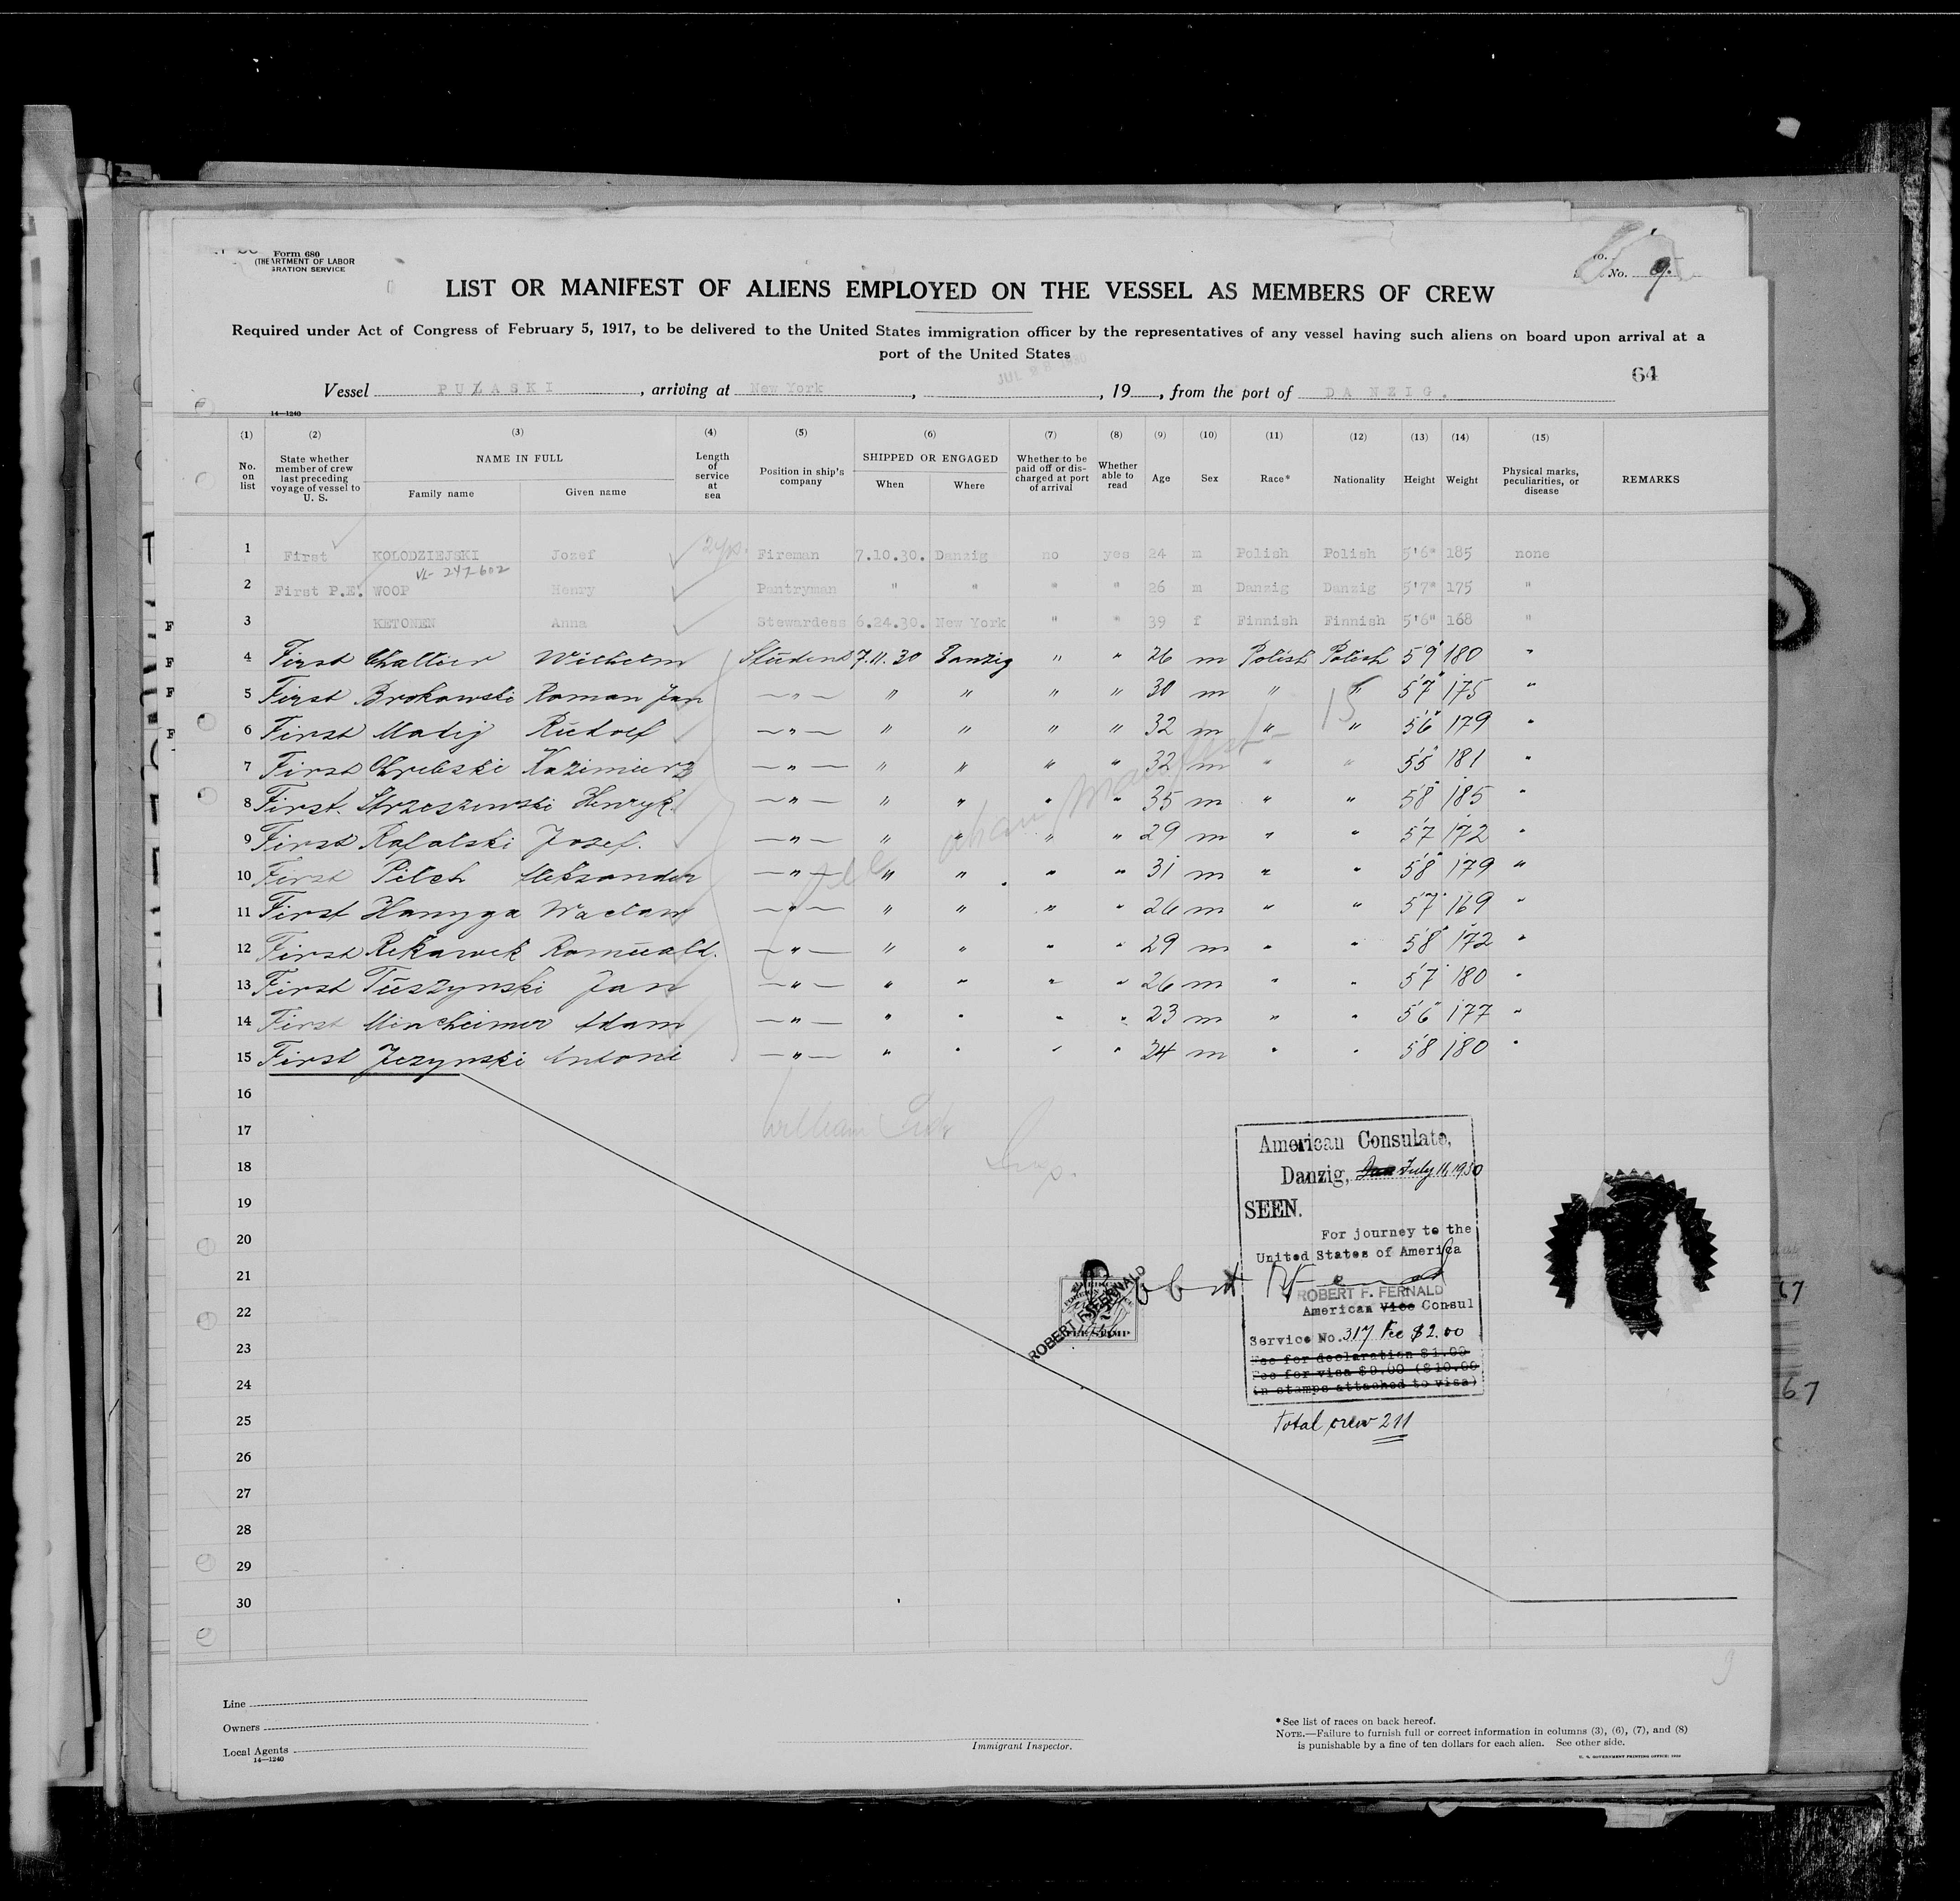 Form 680
ARTMENT OF LABOR
GRATION SERVICE
No. 9.
LIST OR MANIFEST OF ALIENS EMPLOYED ON THE VESSEL AS MEMBERS OF CREW
Required under Act of Congress of February 5, 1917, to be delivered to the United States immigration officer by the representatives of any vessel having such aliens on board upon arrival at a
port of the United States
64
Vessel PULASKI, arriving at New York, JUL 1930, 19, from the port of DANZIG.
14—1240
(1) (2) (3) (4) (5) (6) (7) (8) (9) (10) (11) (12) (13) (14) (15)
No. on list State whether member of crew last preceding voyage of vessel to U. S. NAME IN FULL Family name Given name Length of service at sea Position in ship's company SHIPPED OR ENGAGED When Where Whether to be paid off or discharged at port of arrival Whether able to read Age Sex Race* Nationality Height Weight Physical marks, peculiarities, or disease REMARKS
1 First KOLODZIEJSKI Jozef 2 yrs. Fireman 7.10.30. Danzig no yes 24 m Polish Polish 5'6" 185 none
VL- 247602
2 First P.E. WOOP Henry Pantryman " " " " 26 m Danzig Danzig 5'7" 175 "
3 KETONEN Anna Stewardess 6.24.30. New York " " 39 f Finnish Finnish 5'6" 168 "
4 First Challier Wilhelm Student 7.11.30 Danzig " " 26 m Polish Polish 5'9" 180 "
5 First Brokowski Roman Jan —"— " " " " 30 m " " 5'7" 175 "
6 First Madej Rudolf —"— " " " " 32 m " " 5'6" 179 "
7 First Chrebski Kazimierz —"— " " " " 32 m " " 5'5" 181 "
8 First. Strzeszewski Henryk. —"— " " " " 35 m " " 5'8" 185 "
9 First Rafalski Jozef. —"— " " " " 29 m " " 5'7 172 "
10 First Pilch Aleksander —"— " " " " 31 m " " 5'8" 179 "
11 First Hanyga Waclaw —"— " " " " 26 m " " 5'7" 169 "
12 First Rekawek Romuald. —"— " " " " 29 m " " 5'8" 172 "
13 First Tuszynski Jan —"— " " " " 26 m " " 5'7" 180 "
14 First Mincheimer Adam —"— " " " " 23 m " " 5'6" 177 "
15 First Jezynski Antoni —"— " " " " 24 m " " 5'8 180 "
15
16
17
18
19
20
21
22
23
24
25
26
27
28
29
30
William
Insp.
American Consulate,
Danzig, Jan July 16 1930
SEEN.
For journey to the
United States of America
Robert F Fernald
ROBERT F. FERNALD
American Vice Consul
Service No. 317 Fee $2.00
Fee for declaration $1.00
Fee for visa $9.00 ($10.00
in stamps attached to visa)
Total crew 211
ROBERT F. FERNALD
Line
Owners
Local Agents
14—1240
Immigrant Inspector.
*See list of races on back hereof.
NOTE.—Failure to furnish full or correct information in columns (3), (6), (7), and (8)
is punishable by a fine of ten dollars for each alien. See other side.
U. S. GOVERNMENT PRINTING OFFICE: 1930
9
67
67